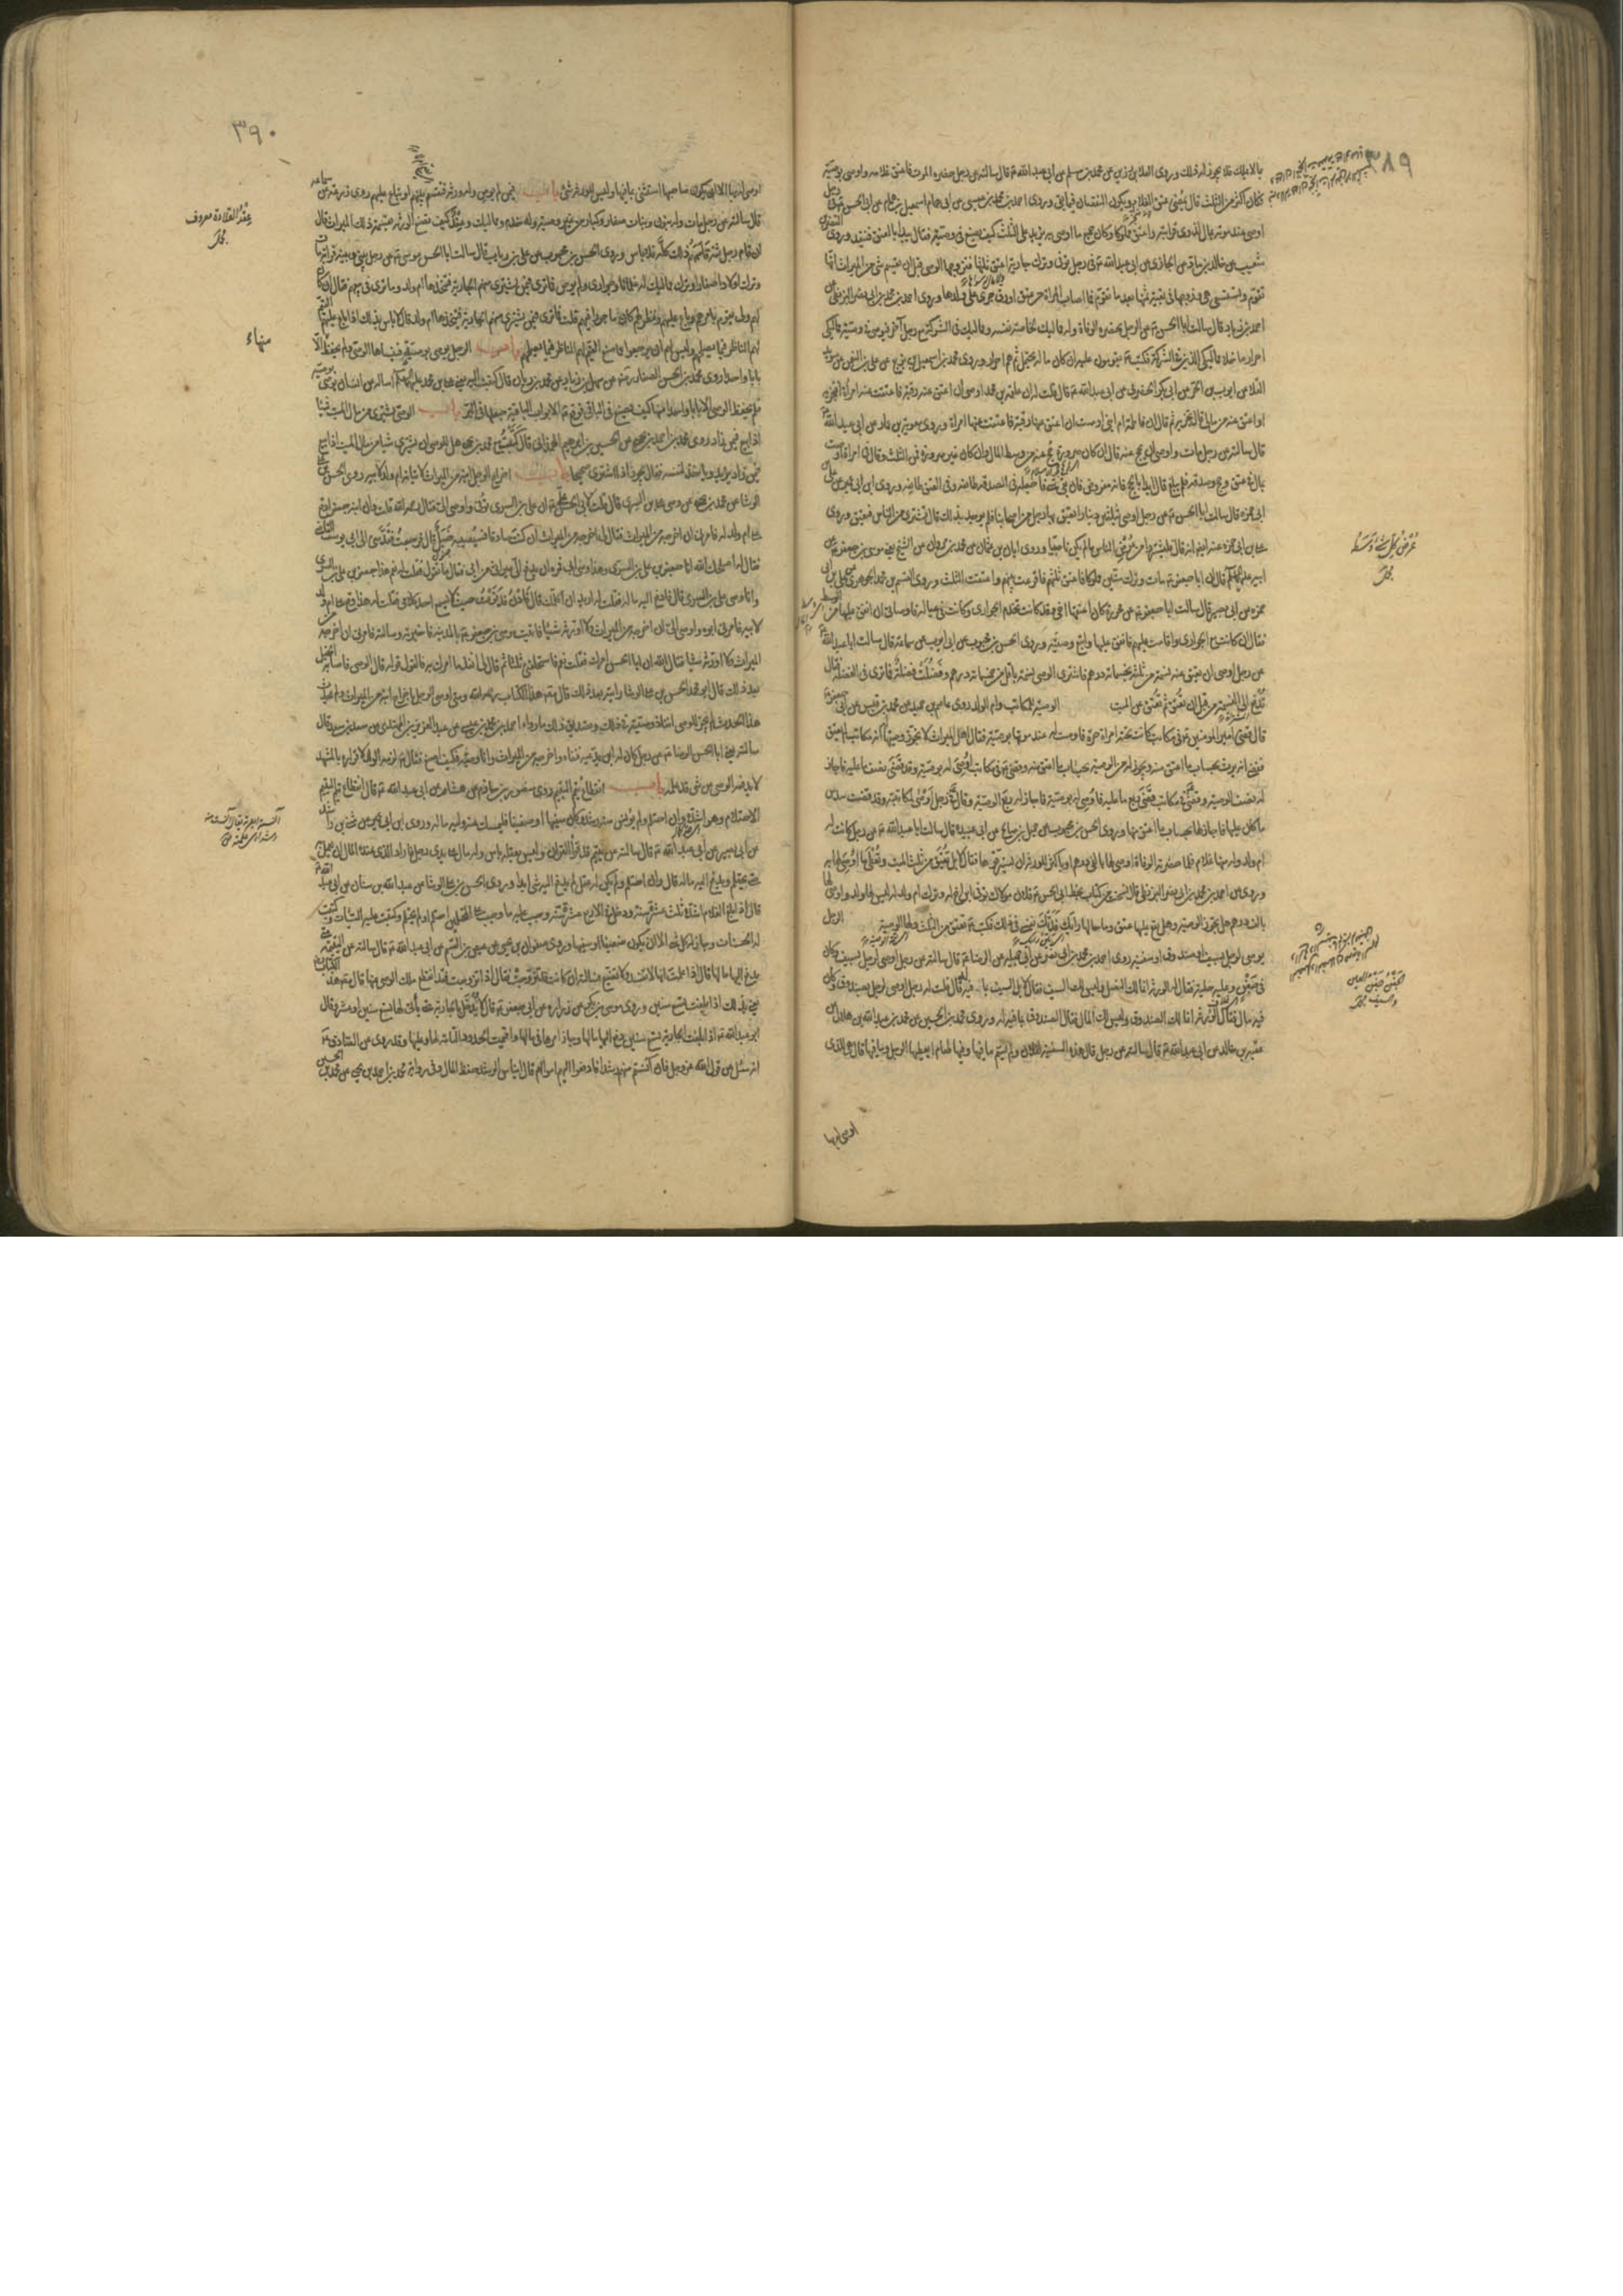 ٣٨٩
بالاملك فلا يجوز له ذلك وروى العلا بن رزين عن محمد بن مسلم عن ابى عبد الله ع قال سالته عن رجل حضره الموت فاعتق غلامه واوصى بوصيّة
فكان اكثر من الثلث قال يمضى عتق الغلام ويكون النقصان فيما بقى وروى احمد بن محمد بن عيسى عن ابى همام اسمعيل بن همام عن ابى الحسن ع فى رجل
اوصى عند موته بمال لذوى قرابته واعتق مملوكا وكان جميع ما اوصى به يزيد على الثلث كيف يصنع فى وصيته فقال يبدا بالعتق فينفذ وروى
عن ابى عبد الله ع فى رجل توفى وترك جارية اعتق ثلثها فتزوجها الوصى قبل ان يقسم شى من الميراث انها
تقوم وتستسعى هى وزوجها فى بقية ثمنها بعد ما تقوم فما اصاب المراة من عتق او رق جرى على ولدها وروى احمد بن محمد بن ابى نصر البزنطى عن
احمد بن زياد قال سالت ابا الحسن ع عن الرجل يحضره الوفاة وله مماليك لخاصة نفسه ومماليك فى الشركة مع رجل آخر فيوصى فى وصيته مماليكى
احرار ما خلا مماليكى الذين فى الشركة فكتب ع يقومون عليه ان كان ماله يحتمل ثم هم احرار وروى محمد بن اسمعيل بن بزيع عن على بن النعمن عن سويد
القلا عن ايوب بن الحر عن ابى بكر الحضرمى عن ابى عبد الله ع قال قلت له ان علقمة بن محمد اوصى ان اعتق عنه رقبة فاعتقت عنه امراة افتجزيه
او اعتق عنه من مالى قال تجزيه ثم قال ان فاطمة ام ابنى اوصت ان اعتق عنها رقبة فاعتقت عنها امراة وروى معوية بن عمار عن ابى عبد الله ع
قال سالته عن رجل مات واوصى ان يحج عنه قال ان كان صرورة يحج عنه من وسط المال وان كان غير صرورة فمن الثلث وقال فى امراة اوصت
بمال فى عتق وحج وصدقة فلم يبلغ قال ابدا بالحج فانه مفروض فان بقى شى فاجعله فى الصدقة طائفة وفى العتق طائفة وروى ابن ابى عمير عن على بن
ابى حمزة قال سالت ابا الحسن ع عن رجل اوصى بثلثين دينارا يعتق بها رجل من اصحابنا فلم يوجد بذلك قال يشترى من الناس فيعتق وروى
على بن ابى حمزة عنه ايضا انه قال فليشتروا من عرض الناس ما لم يكن ناصبيا وروى ابان بن عثمان عن محمد بن مروان عن الشيخ يعنى موسى بن جعفر ع عن
ابيه عليهما السلام قال ان ابا جعفر ع مات وترك ستين مملوكا فاعتق ثلثهم فاقرعت بينهم واعتقت الثلث وروى القسم بن محمد الجوهرى عن على بن ابى
حمزة عن ابى بصير قال سالت ابا جعفر ع عن محررة كان اعتقها اخى وقد كانت تخدم الجوارى وكانت فى عياله فاوصانى ان انفق عليها من الوسط
فقال ان كانت مع الجوارى واقامت عليهم فانفق عليها واتبع وصيته وروى الحسن بن محبوب عن ابى ايوب عن سماعة قال سالت ابا عبد الله ع
عن رجل اوصى ان يعتق عنه نسمة من ثلثه بخمسماية درهم فاشترى الوصى نسمة باقل من خمسماية درهم وفضلت فضلة فما ترى فى الفضلة قال
تدفع الى النسمة من قبل ان تعتق ثم تعتق عن الميت الوصية للمكاتب وام الولد روى عاصم بن حميد عن محمد بن قيس عن ابى جعفر ع
قال قضى امير المومنين ع فى مكاتب كانت تحته امراة حرة فاوصت له عند موتها بوصية فقال اهل الميراث لا تجوز وصيتها له انه مكاتب لم يعتق
فقضى انه يرث بحساب ما اعتق منه ويجوز له من الوصية بحساب ما اعتق منه وقضى ع فى مكاتب اوصى له بوصية وقد قضى نصف ما عليه فاجاز
له نصف الوصية وقضى فى مكاتب قضى ربع ما عليه فاوصى له بوصية فاجاز له ربع الوصية وقال فى رجل اوصى لمكاتبته وقد قضت سدس
ما كان عليها فاجاز لها بحساب ما اعتق منها وروى الحسن بن محبوب عن جميل بن صالح عن ابى عبيدة قال سالت ابا عبد الله ع عن رجل كانت له
ام ولد وله منها غلام فلما حضرته الوفاة اوصى لها بالفى درهم او باكثر للورثة ان يسترقوها فقال لا بل تعتق من ثلث الميت وتعطى ما اوصى لها به
وروى عن احمد بن محمد بن ابى نصر البزنطى قال نسخت من كتاب بخط ابى الحسن ع فلان مولاك توفى ابن اخ له وترك ام ولد له ليس لها ولد واوصى لها
بالف درهم هل يجوز الوصية وهل يقع عليها عتق وما حالها رايك فدتك نفسى فى ذلك فكتب ع تعتق من الثلث ولها الوصية الرجل
يوصى لرجل بسيف او صندوق او سفينة روى احمد بن محمد بن ابى نصر عن ابى جميلة عن الرضا ع قال سالته عن رجل اوصى لرجل بسيف وكان
فى جفن وعليه حلية فقال له الورثة انما لك النصل وليس لك السيف فقال لا بل السيف بما فيه له قال قلت له رجل اوصى لرجل بصندوق وكان
فيه مال فقال الورثة انما لك الصندوق وليس لك المال فقال الصندوق بما فيه له وروى محمد بن الحسين عن محمد بن عبد الله بن هلال عن
عقبة بن خالد عن ابى عبد الله ع قال سالته عن رجل قال هذه السفينة لفلان ولم يسم ما فيها وفيها طعام ايعطيها الرجل وما فيها قال هى للذى
اوصى له بها
٣٩٠
اوصى له بها الا ان يكون صاحبها استثنى بما فيها وليس للورثة شئ باب فيمن لم يوص وله ورثة فيقسم بينهم او يباع عليهم روى زرعة عن سماعة
قال سالته عن رجل مات وله بنون وبنات صغار وكبار من غير وصية وله خدم ومماليك وعقد كيف يصنع الورثة بقسمة ذلك الميراث قال
ان قام رجل ثقة قاسمهم ذلك كله فلا باس وروى الحسن بن محبوب عن على بن رياب قال سالت ابا الحسن موسى ع عن رجل بينى وبينه قرابة مات
وترك اولادا صغارا وترك مماليك له غلمانا وجوارى ولم يوص فما ترى فيمن يشترى منهم الجارية فيتخذها ام ولد وما ترى فى بيعهم فقال ان كان
لهم ولى يقوم بامرهم وباع عليهم ونظر لهم كان ماجورا فيهم قلت فما ترى فيمن يشترى منهم الجارية فيتخذها ام ولد قال لا باس بذلك اذا باع عليهم القيم
لهم الناظر فيما يصلحهم وليس لهم ان يرجعوا عما صنع القيم لهم الناظر فيما يصلحهم باب الرجل يوصى بوصية فينساها الوصى ولم يحفظ الا
بابا واحدا روى محمد بن الحسن الصفار رض عن سهل بن زياد عن محمد بن ريان قال كتبت اليه يعنى على بن محمد عليهما السلام اساله عن انسان يوصى بوصية
فلم يحفظ الوصى الا بابا واحدا منها كيف يصنع فى الباقى فوقع ع الابواب الباقية يجعلها فى البر باب الوصى يشترى من مال الميت شيئا
اذا بيع فيمن زاد روى محمد بن احمد بن يحيى عن الحسين بن ابراهيم الهمدانى قال كتبت مع محمد بن يحيى هل للوصى ان يشترى شيئا من مال الميت اذا بيع
فيمن زاد يزيد وياخذ لنفسه فقال يجوز اذا اشترى صحيحا باب اخراج الرجل ابنه من الميراث لاتيانه ام ولد لابيه روى الحسن بن على
الوشا عن محمد بن يحيى عن وصى على بن السرى قال قلت لابى الحسن ع ان على بن السرى توفى واوصى الى فقال رحمه الله قلت وان ابنه جعفرا وقع
على ام ولد له فامرنى ان اخرجه من الميراث فقال لى اخرجه من الميراث ان كنت صادقا فسيصيبه خبل قال فرجعت فقدمنى الى ابى يوسف القاضى
فقال له اصلحك الله انا جعفر بن على بن السرى وهذا وصى ابى فمره ان يدفع الى ميراثى من ابى فقال ما تقول فقلت له نعم هذا جعفر بن على بن السرى
وانا وصى على بن السرى قال فادفع اليه ماله فقلت له اريد ان اكلمك قال فادن فدنوت حيث لا يسمع احد كلامى فقلت له هذا وقع على ام ولد
لابيه فامرنى ابوه واوصى الى ان اخرجه من الميراث ولا اورثه شيئا فاتيت موسى بن جعفر ع بالمدينة فاخبرته وسالته فامرنى ان اخرجه من
الميراث ولا اورثه شيئا فقال الله ان ابا الحسن امرك فقلت نعم فاستحلفنى ثلثا ثم قال لى انفذ ما امرك به فالقول قوله قال الوصى فاصابه الخبل
بعد ذلك قال ابو محمد الحسن بن على الوشا رايته بعد ذلك قال مصنف هذا الكتاب رحمه الله ومتى اوصى الرجل باخراج ابنه من الميراث ولم يحدث
هذا الحدث لم يجز للوصى انفاذ وصيته فى ذلك وتصديق ذلك ما رواه احمد بن محمد بن عيسى عن عبد العزيز بن المهتدى عن سعد بن سعد قال
سالته يعنى ابا الحسن الرضا ع عن رجل كان له ابن يدعيه فنفاه واخرجه من الميراث وانا وصيه فكيف اصنع فقال ع لزمه الولد لاقراره بالمشهد
لا يدفعه الوصى عن شى قد علمه باب انقطاع يتم اليتيم روى منصور بن حازم عن هشام عن ابى عبد الله ع قال انقطاع يتم اليتيم
الاحتلام وهو اشده وان احتلم ولم يونس منه رشده وكان سفيها او ضعيفا فليمسك عنه وليه ماله وروى ابن ابى عمير عن مثنى بن راشد
عن ابى بصير عن ابى عبد الله ع قال سالته عن يتيم قد قرا القران وليس بعقله باس وله مال على يدى رجل فاراد الذى عنده المال ان يعمل به
حتى يحتلم ويدفع اليه ماله قال وان احتلم ولم يكن له عقل لم يدفع اليه شى ابدا وروى الحسن بن على الوشا عن عبد الله بن سنان عن ابى عبد الله ع
قال اذا بلغ الغلام اشده ثلث عشرة سنة ودخل فى الاربع عشرة سنة وجب عليه ما وجب على المحتلمين احتلم او لم يحتلم وكتبت عليه السيئات وكتبت
له الحسنات وجاز له كل شى الا ان يكون ضعيفا او سفيها وروى صفوان بن يحيى عن عيص بن القسم عن ابى عبد الله ع قال سالته عن اليتيمة متى
يدفع اليها مالها قال اذا علمت انها لا تفسد ولا تضيع فسالته ان كانت قد تزوجت فقال اذا تزوجت فقد انقطع ملك الوصى عنها قال مصنف هذا الكتاب
يعنى بذلك اذا بلغت تسع سنين وروى موسى بن بكر عن زرارة عن ابى جعفر ع قال لا يدخل بالجارية حتى ياتى لها تسع سنين او عشر وقال
ابو عبد الله ع اذا بلغت الجارية تسع سنين دفع اليها مالها وجاز امرها فى مالها واقيمت الحدود التامة لها وعليها وقد روى عن الصادق ع
انه سئل عن قول الله عز وجل فان آنستم منهم رشدا فادفعوا اليهم اموالهم قال ايناس الرشد حفظ المال وفى رواية محمد بن احمد بن يحيى عن محمد بن الحسين
عقد القلادة معروف